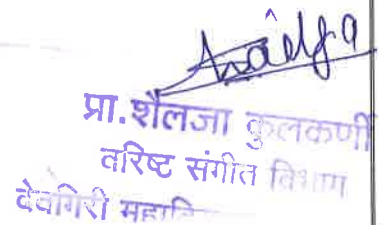 प्रा.शैलजा कुलकर्णी
वरिष्ट संगीत विभाग
देवगिरी